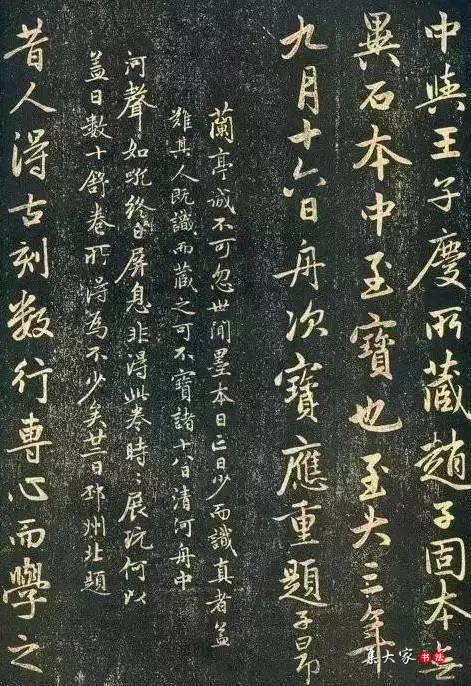 中與王子慶所藏趙子固本無
異石本中至寶也至大三年
九月十六日舟次寶應重題子昂
蘭亭誠不可忽世間墨本日亡日少而識真者盖
難其人既識而藏之可不寶諸十八日清河舟中
河聲如吼終日屏息非得此卷時〻展玩何以
盖日數十舒卷所得為不少矣廿二日邳州北題
昔人得古刻數行專心而學之
集大家 书法